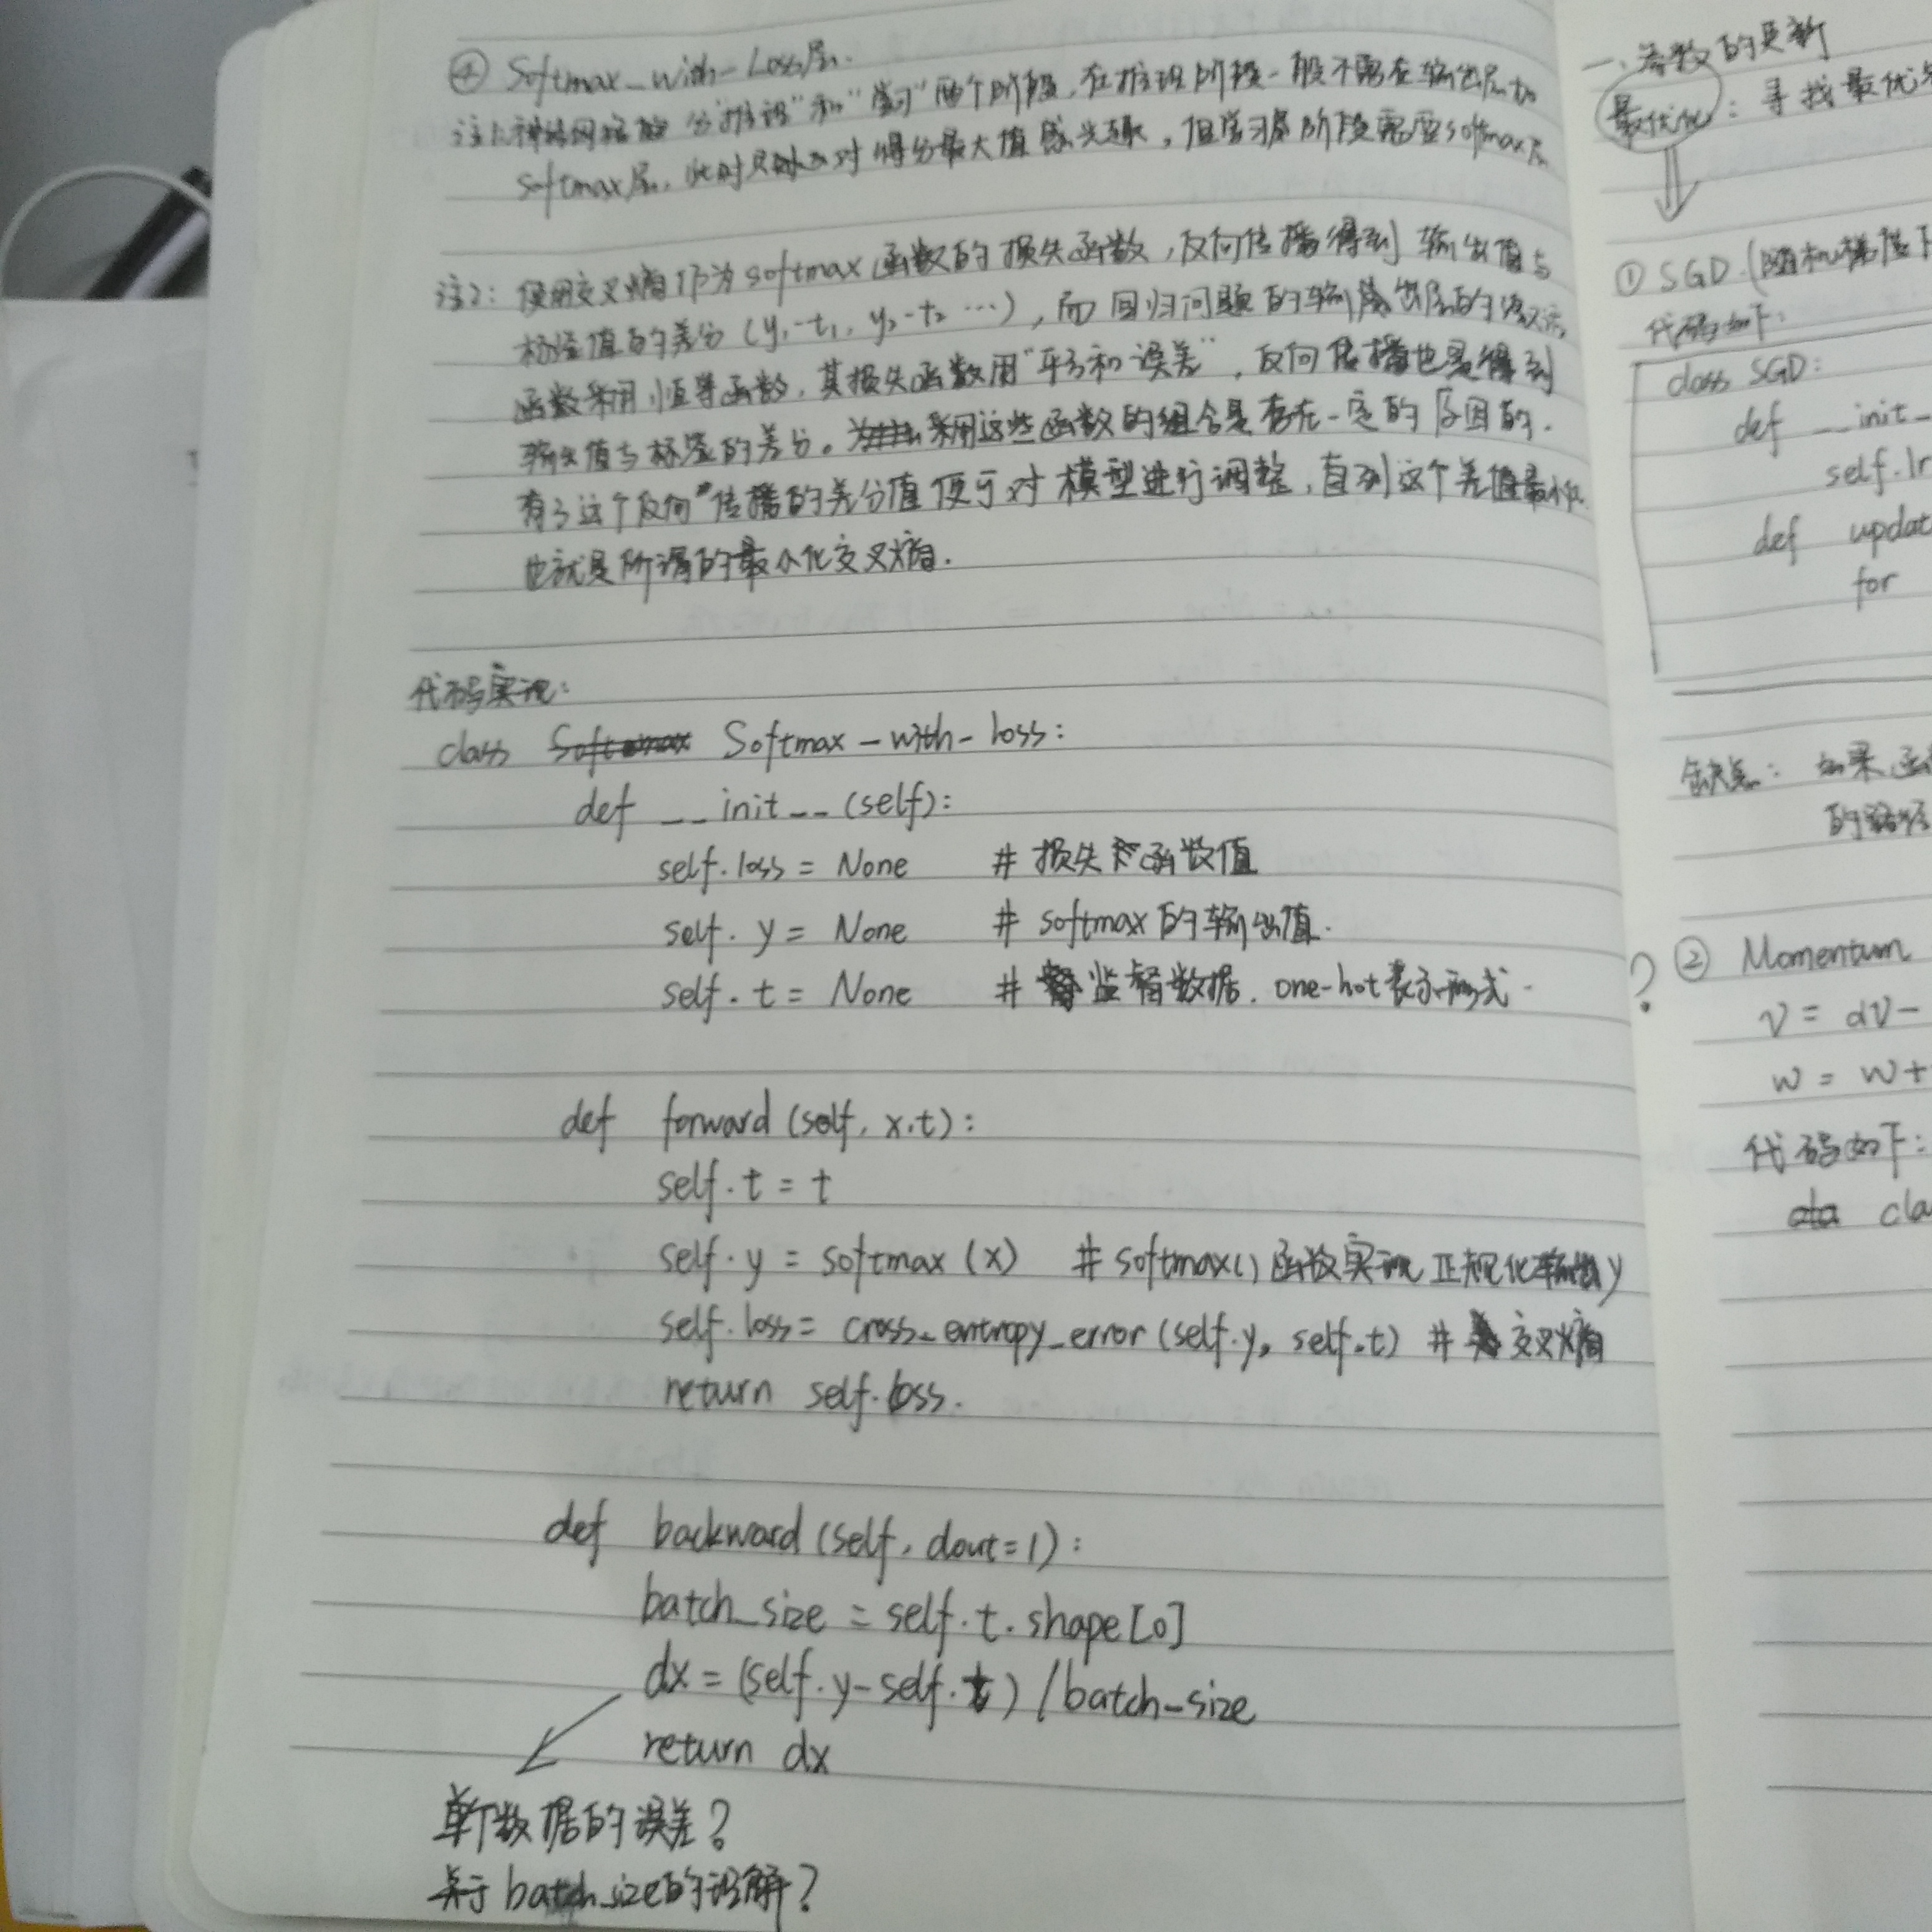 ④ Softmax_with_Loss层.
注1:神经网络 分"推理"和"学习"两个阶段,在推理阶段一般不需在输出层加
softmax层,此时只 对得分最大值感兴趣,但学习 阶段需要softmax层
注2: 使用交叉熵作为softmax函数的损失函数,反向传播得到 输出值与
标签值的差分(y₁-t₁, y₂-t₂ …),而回归问题的输 出层的
函数采用恒等函数,其损失函数用"平方和误差",反向传播也是得到
输出值与标签的差分。采用这些函数的组合是存在一定的原因的.
有了这个反向传播的差分值便于对模型进行调整,直到这个差值最小化
也就是所谓的最小化交叉熵.
代码实现:
class Softmax Softmax-with-loss:
def __init__(self):
self.loss = None # 损失函数值
self.y = None # softmax的输出值.
self.t = None # 监督数据. one-hot表示形式.
def forward(self, x.t):
self.t = t
self.y = softmax(x) # softmax()函数实现正规化输出y
self.loss = cross_entropy_error(self.y, self.t) # 交叉熵
return self.loss.
def backward(self, dout=1):
batch_size = self.t.shape[0]
dx = (self.y-self.t)/batch_size
return dx
单个数据的误差?
关于batch_size的误解?
一、参数的更新
最优化: 寻找最优
① SGD.(随机梯度下
代码如下:
class SGD:
def __init_
self.lr
def updat
for
缺点: 如果函
的路径
? ② Momentum
v = αv-
w = w+
代码如下:
cla